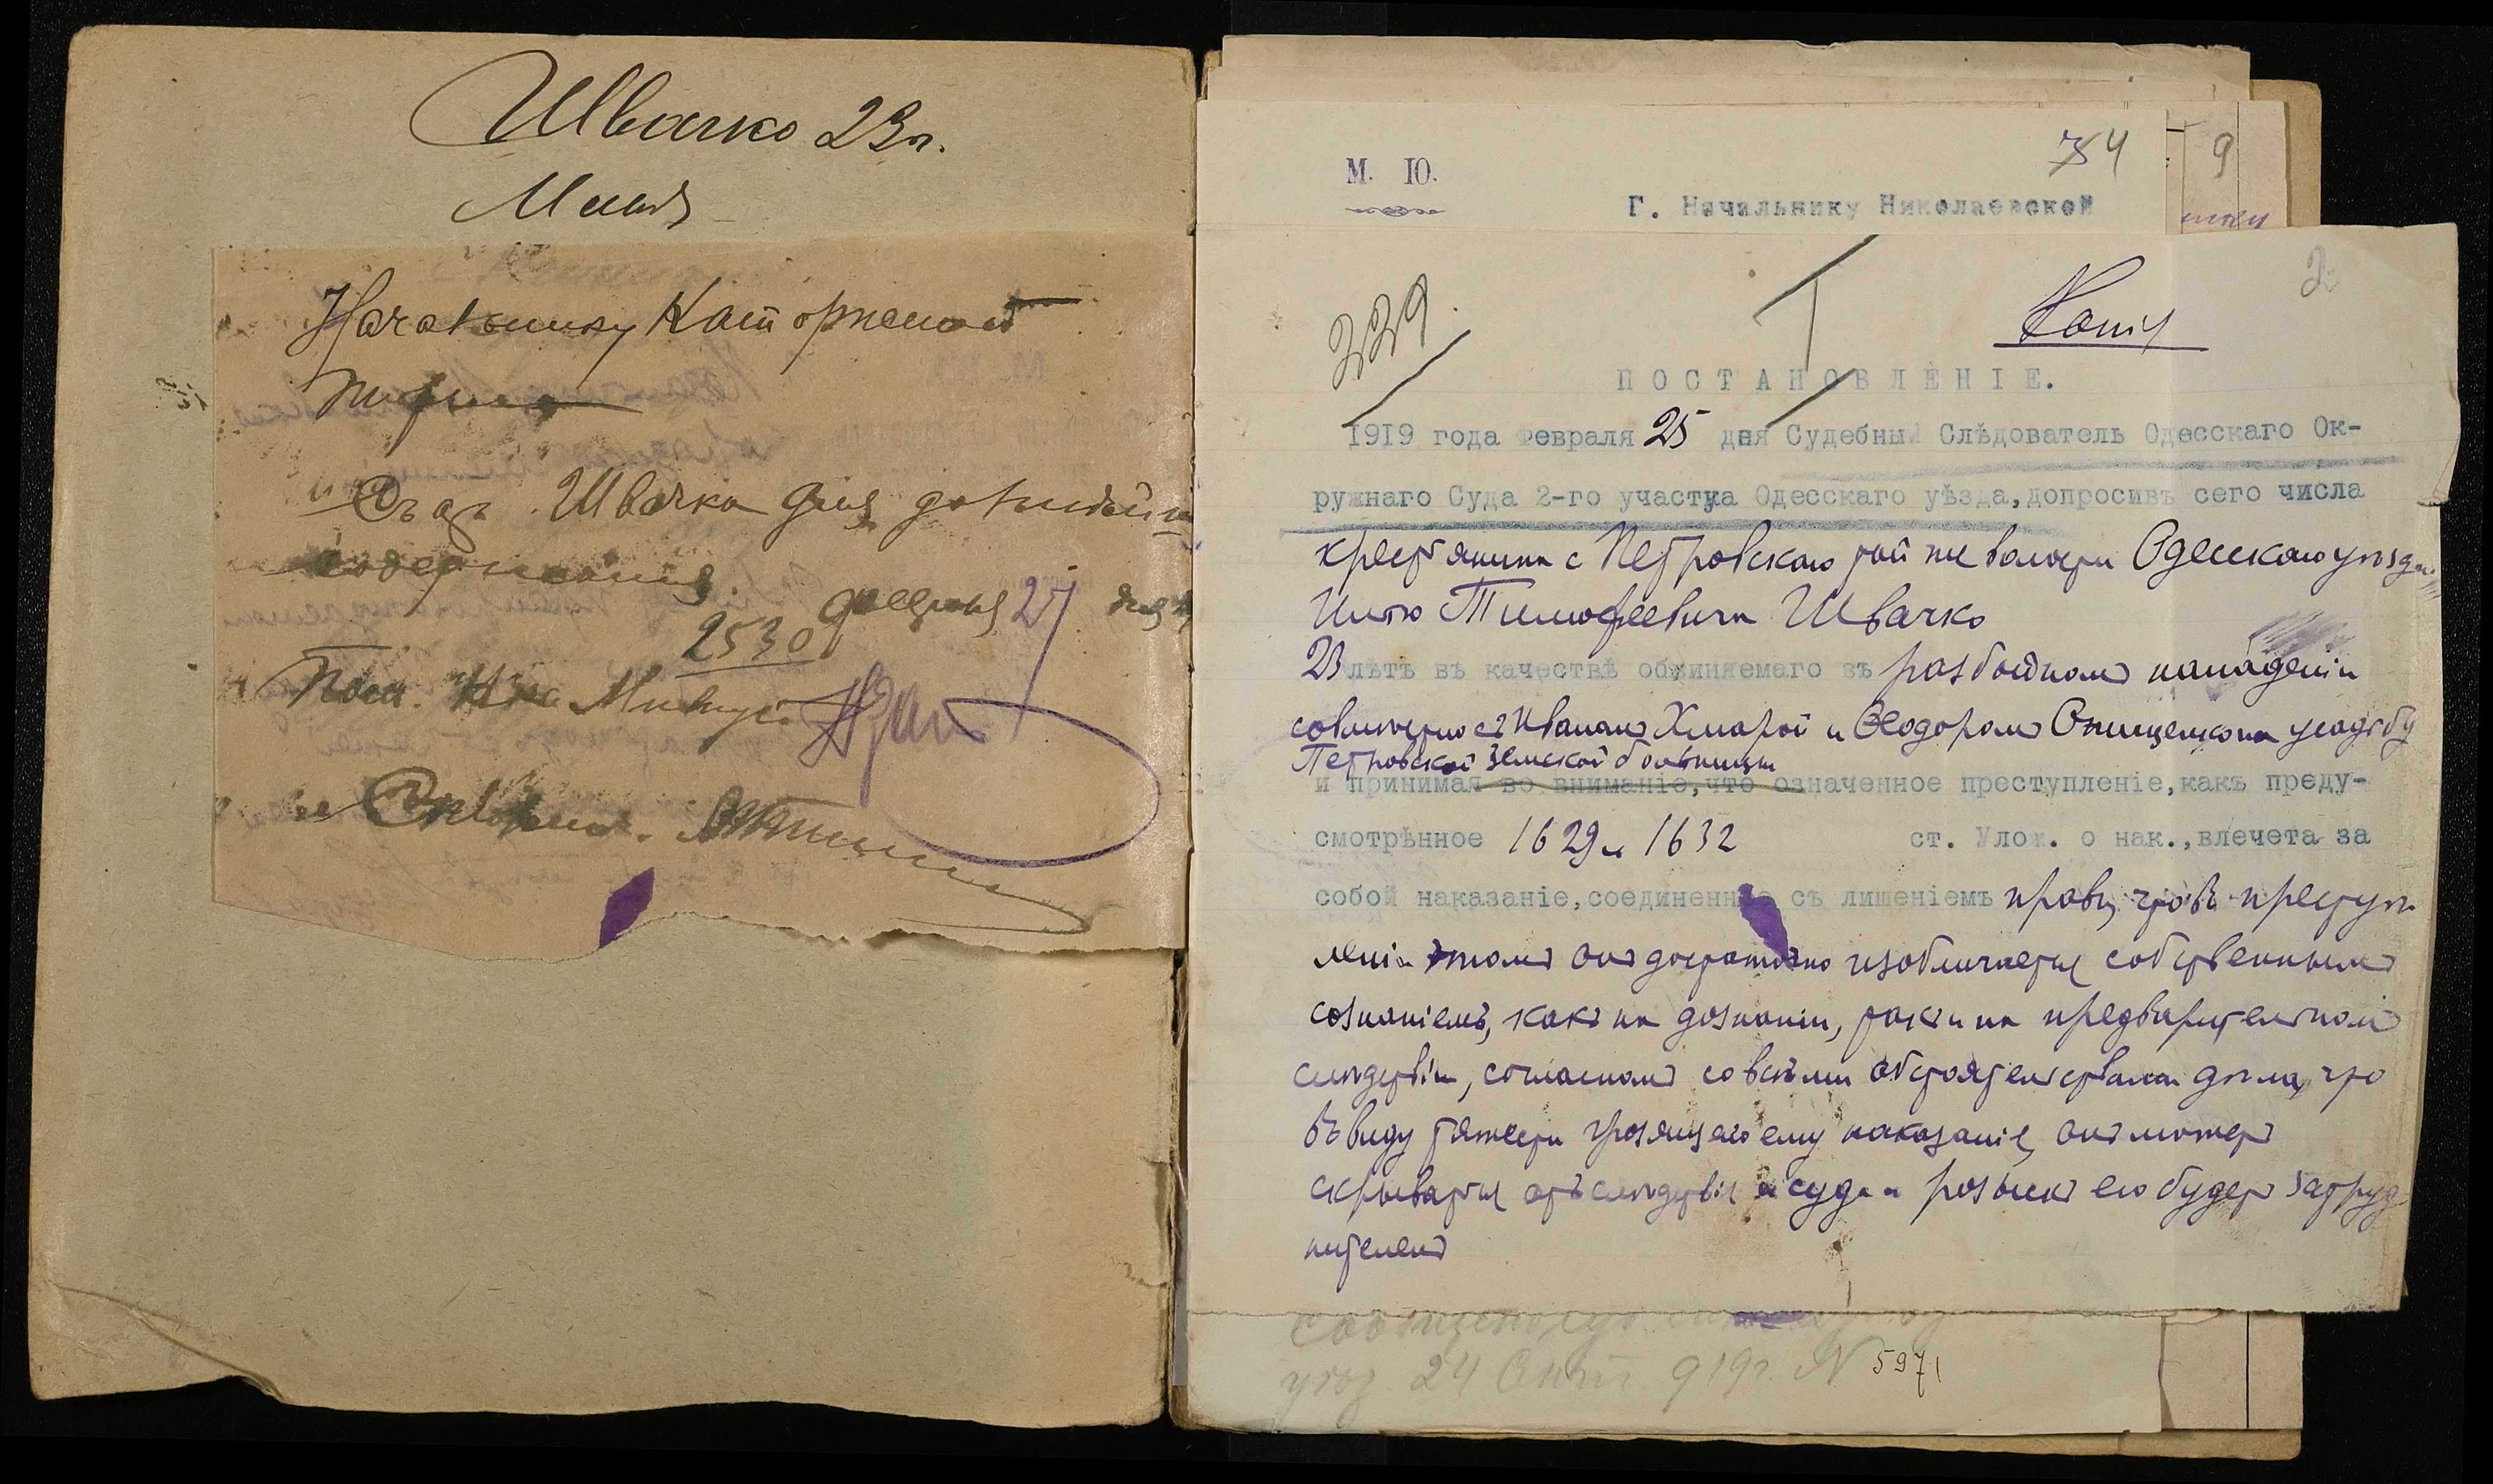 Швачко 23 л.
Илья
Начальнику Каторжной
тюрьмы
Съ ар. Швачко для дальнѣйш
содержанія.
февраля 27 дня
2530
Пом. Нка
М. Ю.
34
9
Г. Начальнику Николаевской
2
339
Копия
ПОСТАНОВЛЕНІЕ.
1919 года Февраля 25 дня Судебный Слѣдователь Одесскаго Ок-
ружнаго Суда 2-го участка Одесскаго уѣзда,допросивъ сего числа
крестьянина с Петровскаго той же волости Одесскаго уѣзда
Илью Тимофеевича Швачко
23 лѣтъ въ качествѣ обвиняемаго въ разбойномъ нападеніи
совмѣстно съ Иваномъ Хмарой и Ѳеодоромъ Онищенко на усадьбу
Петровской Земской больницы
и принимая во вниманіе,что означенное преступленіе,какъ преду-
смотрѣнное 1629 и 1632 ст. Улож. о нак.,влечета за
собой наказаніе,соединенное съ лишеніемъ правъ, что въ преступ
леніи этомъ онъ достаточно изобличается собственнымъ
сознаніемъ, какъ на дознаніи, такъ и на предварительномъ
слѣдствіи, согласномъ со всѣми обстоятельствами дѣла, что
въ виду тяжести грозящаго ему наказанія, онъ можетъ
скрываться отъ слѣдствія и суда и розыскъ его будетъ затруд
нителенъ
уѣзд. 24 Окт. 919 г. N 5971